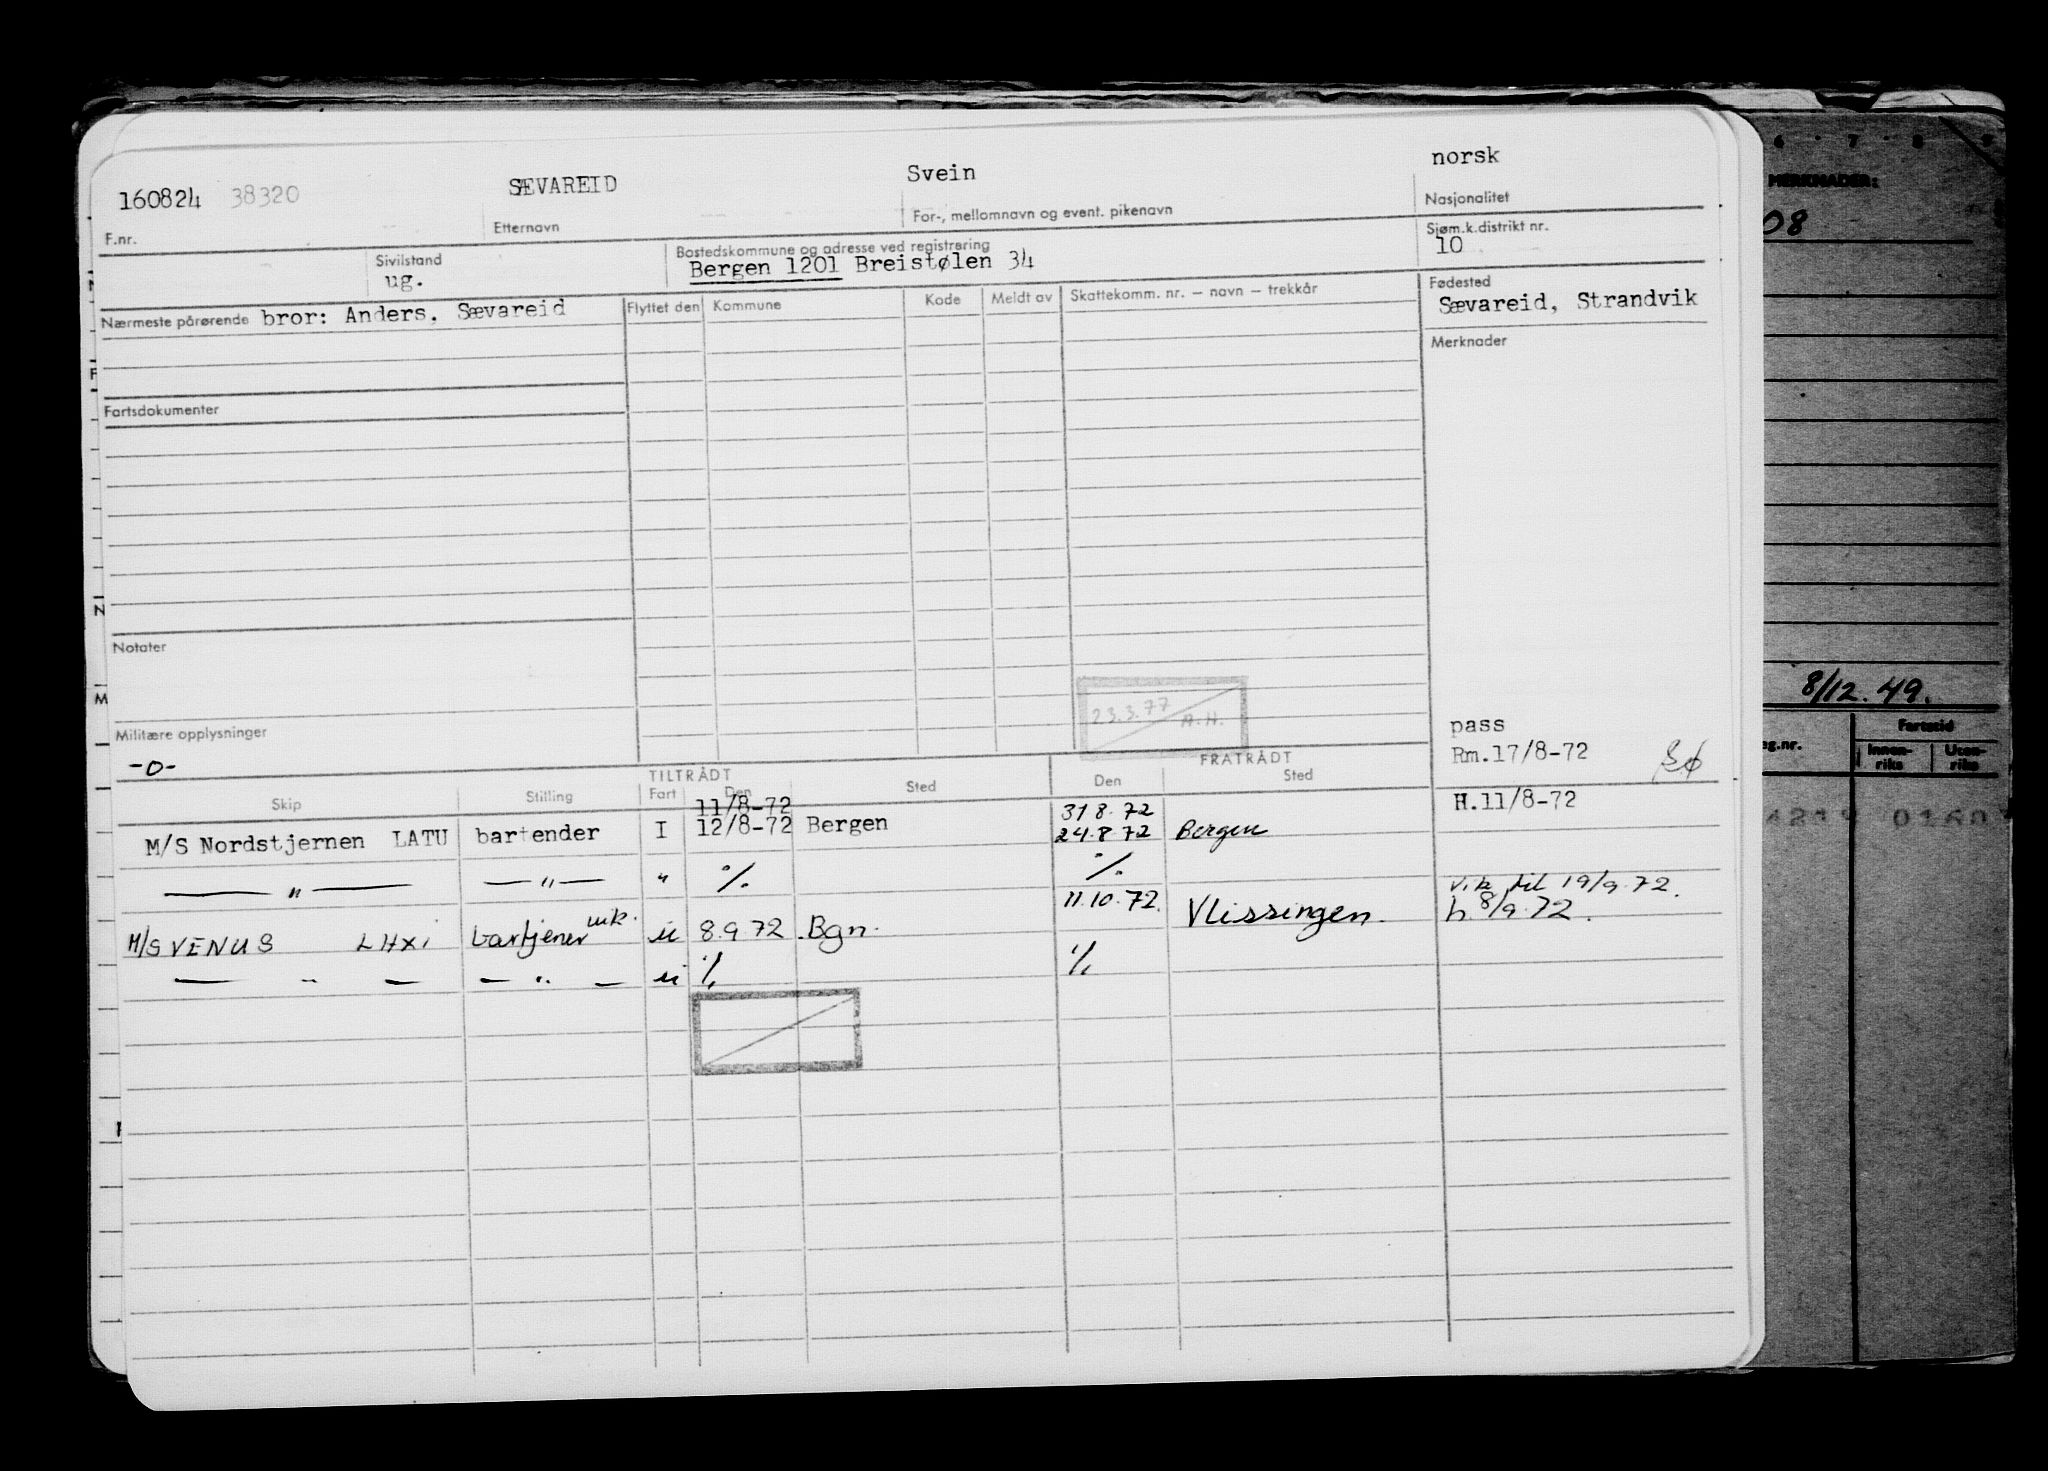 160824 38320 SÆVAREID Svein norsk
F.nr. Etternavn For-, mellomnavn og event. pikenavn Nasjonalitet
Sivilstand Bostedskommune og adresse ved registrering Sjøm.k.distrikt nr.
ug. Bergen 1201 Breistølen 34 10
Nærmeste pårørende bror: Anders. Sævareid Flyttet den Kommune Kode Meldt av Skattekomm. nr. – navn – trekkår Fødested
Sævareid, Strandvik
Merknader
Fartsdokumenter
Notater
23.3.77 A.H.
Militære opplysninger
-o-
pass
Rm.17/8-72
H.11/8-72
TILTRÅDT FRATRÅDT
Skip Stilling Fart Den Sted Den Sted
11/8-72 31 8.72
M/S Nordstjernen LATU bartender I 12/8-72 Bergen 24.8.72 Bergen
— " — — " — " ./. ./.
v.k til 19/9.72.
M/S VENUS LHXI bartjener vik. u 8.9 72 Bgn. 11.10.72. Vlissingen. h. 8/9.72.
— " — — " — u ./. ./.
6 7 8 9
MERKNADER:
08
8/12.49.
eg.nr. Fartstid
Innen-riks Uten-riks